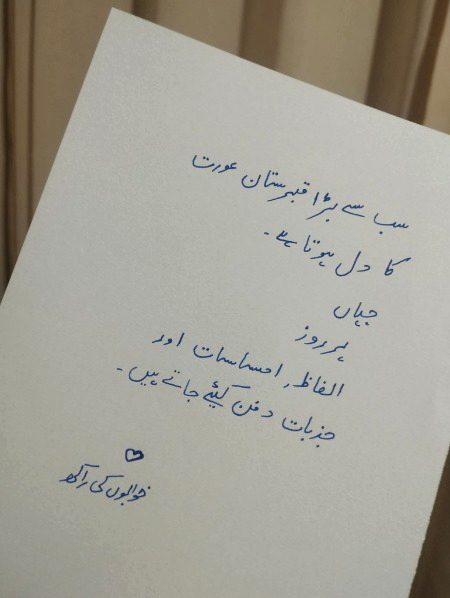 سب سے بڑا قبرستان عورت
کا دل ہوتا ہے۔
جہاں
ہر روز
الفاظ، احساسات اور
جذبات دفن کیئے جاتے ہیں۔
♡
خوابوں کی راکھ